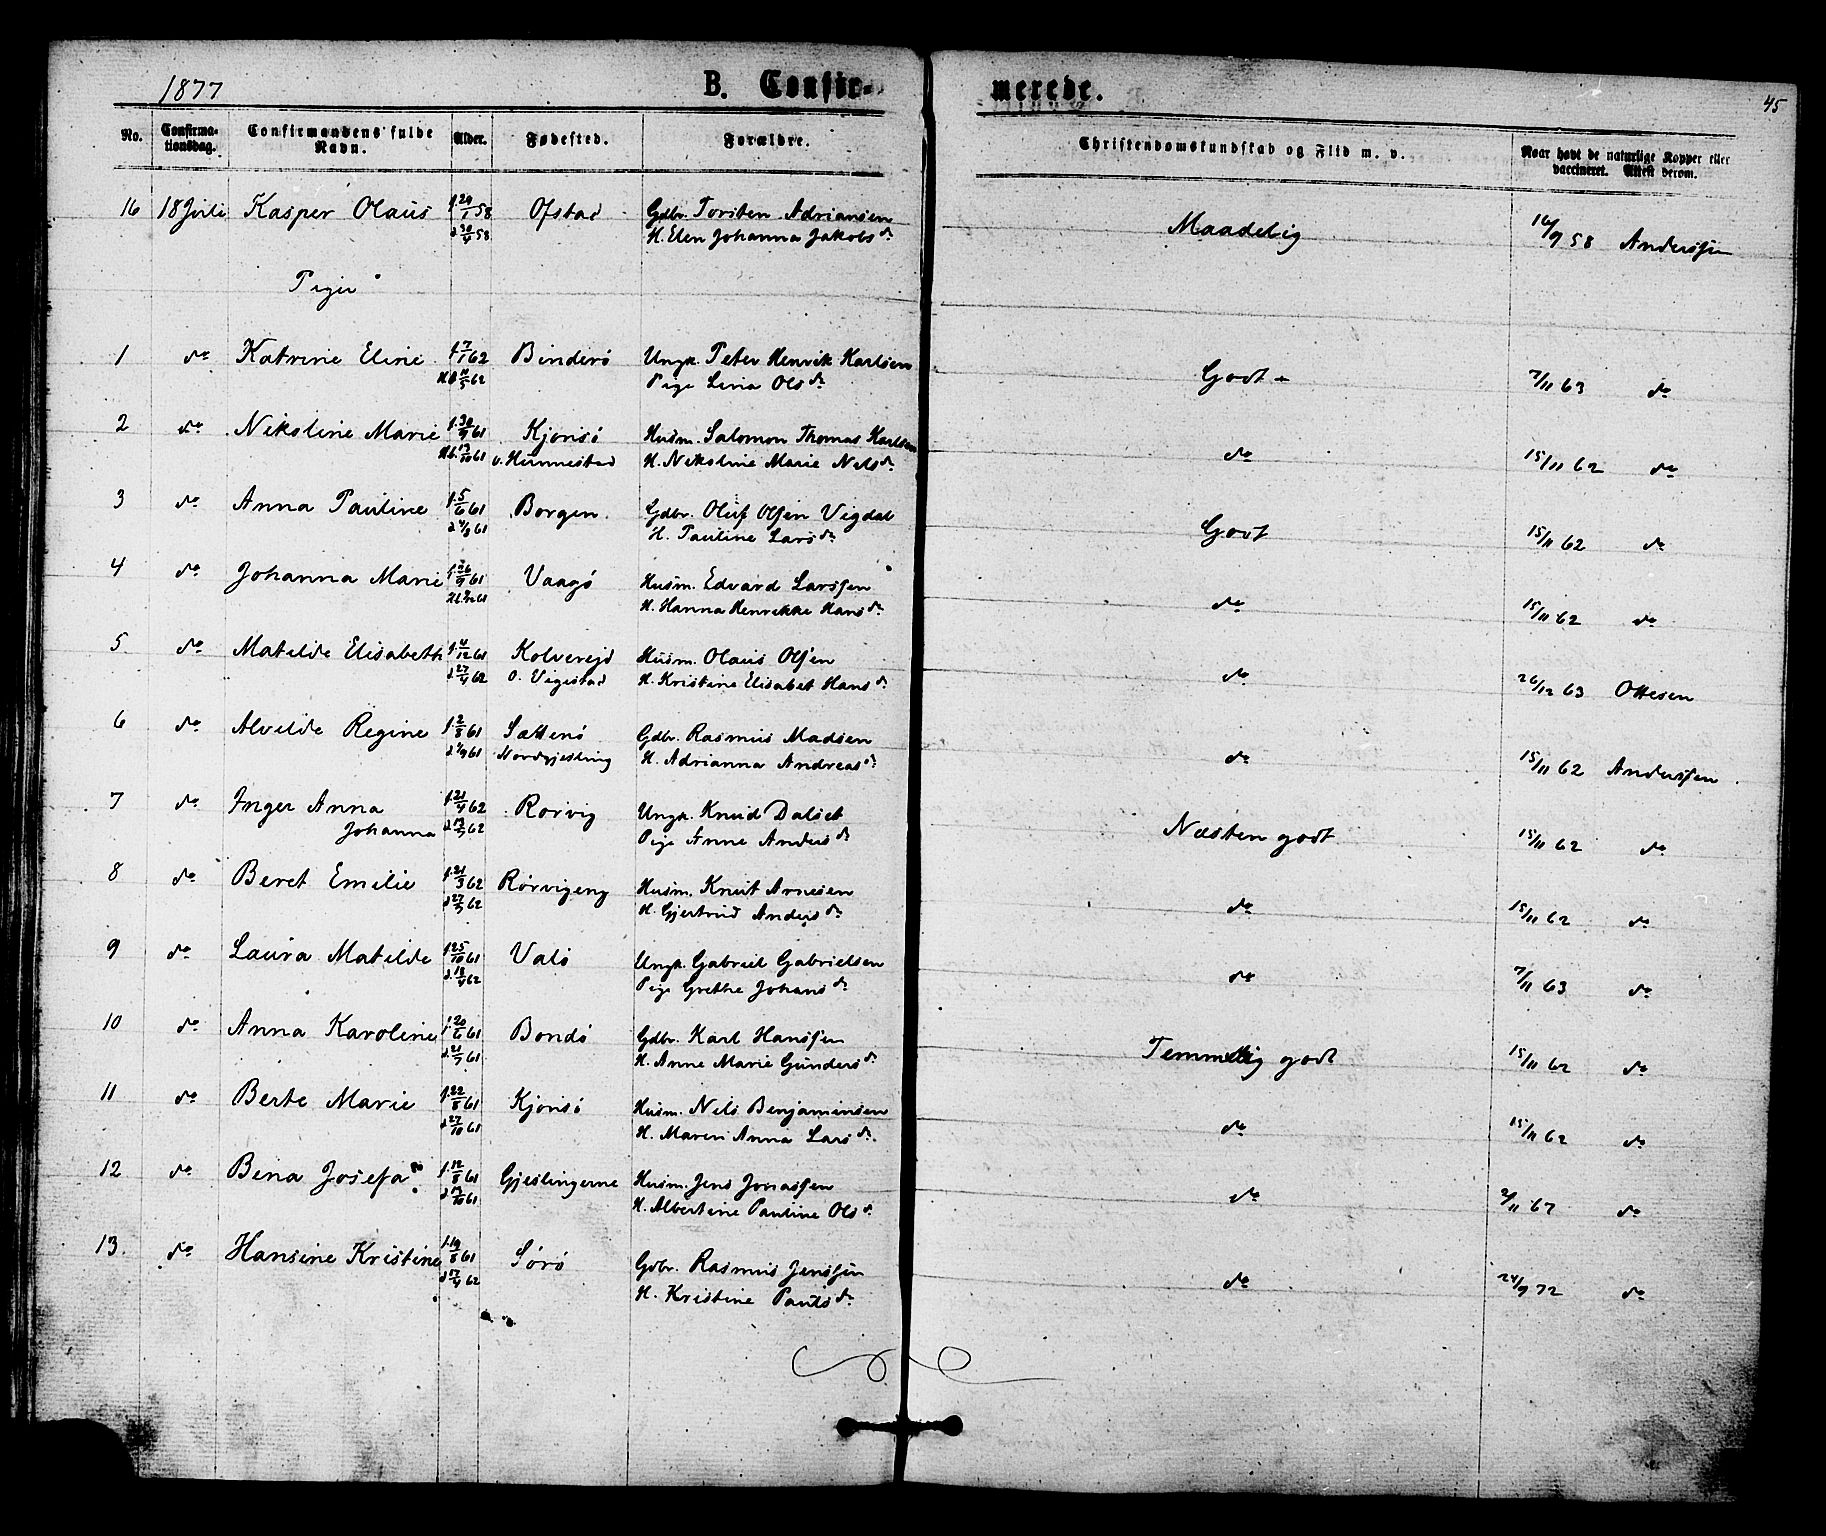 1877
B. Confirmerede.
45
No. Confirmationsdag. Confirmandens fulde Navn. Alder. Fødested. Forældre. Christendomskundskab og Flid m. v. Naar havt de naturlige Kopper eller vaccineret. Attest derom.
16 18 Juli Kasper Olaus f. 29/1 58 Ofstad Gdbr. Torsten Adriansen Maadelig 16/9 58 Anderssen
d 30/4 58 H. Elen Johanna Jakobsd.
Piger
1 do Katrine Eline f. 7/1 62 Binderø Ungk. Peter Henrik Karlsen Godt 7/11 63 do
11/5 62 Pige Lina Olsd.
2 do Nikoline Marie f. 30/9 61 Kjønsø Husm. Salomon Thomas Karlsen do 15/11 62 do
Hd. 13/10 61 v. Hunnestad H. Nikoline Marie Nilsd.
3 do Anna Pauline f. 5/6 61 Borgen Gdbr. Oluf Olsen Vigdal Godt 15/11 62 do
61 H. Pauline Larsd.
4 do Johanna Marie f. 26/9 61 Vaagø Husm. Edvard Larssen do 15/11 62 do
61 H. Hanna Henrikke Hansd.
5 do Matilde Elisabeth f. 4/12 61 Kolvereid Husm. Olaus Olsen do 26/12 63 Ottesen
d 27/4 62 o. Vegestad H. Kristine Elisabet Hansd.
6 do Alvilde Regine f. 2/8 61 Sættenø Gdbr. Rasmus Madsen do 15/11 62 Anderssen
61 Nordgjesling H. Adrianna Andreasd.
7 do Inger Anna f. 21/4 62 Rørvig Ungk. Knud Dalset Næsten godt 15/11 62 do
Johanna 62 Pige Anne Andersd.
8 do Beret Emilie f. 21/3 62 Rørvigeng Husm. Knut Arnesen do 15/11 62 do
62 H. Gjertrud Andersd.
9 do Laura Matilde f. 25/10 61 Valø Ungk. Gabriel Gabrielsen do 7/11 63 do
d. 18/4 62 Pige Grethe Johansd.
10 do Anna Karoline f. 20/6 61 Bondø Gdbr. Karl Hanssen Temmelig godt 15/11 62 do
d. 21/7 61 H. Anne Marie Gundersd.
11 do Berte Marie f. 22/8 61 Kjønsø Husm. Nils Benjaminsen do 15/11 62 do
d 27/10 61 H. Maren Anna Larsd.
12 do Bena Josefa f. 12/8 61 Gjeslingerne Husm. Jens Jonassen do 2/11 67 do
61 H. Albertine Pauline Olsd.
13. do Hansine Kristine f. 19/8 61 Sørø Gdbr. Rasmus Jenssen do 24/9 72 do
d 17/4 62 H. Kristine Paulsd.